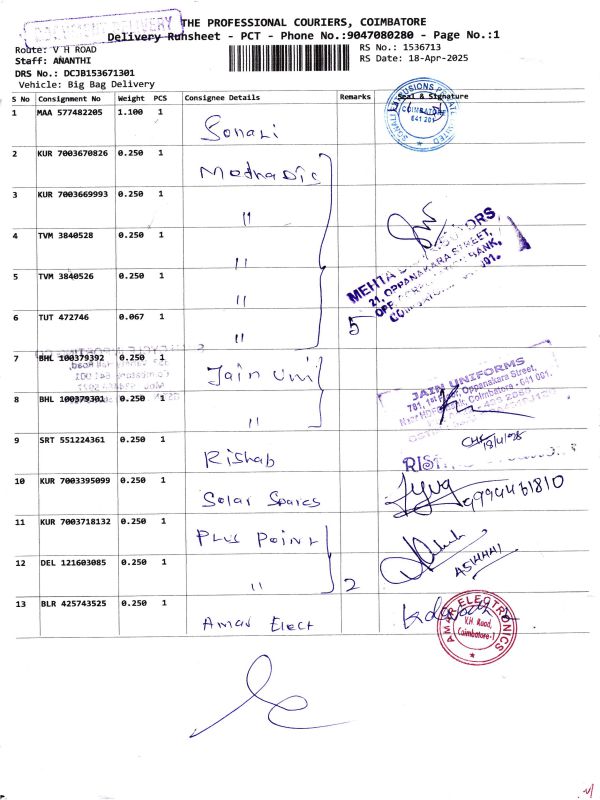 DOCUMENT DELIVERY
THE PROFESSIONAL COURIERS, COIMBATORE
Delivery Runsheet - PCT - Phone No.:9047080280 - Page No.:1
Route: V H ROAD
RS No.: 1536713
Staff: ANANTHI
RS Date: 18-Apr-2025
DRS No.: DCJB153671301
Vehicle: Big Bag Delivery
S No Consignment No Weight PCS Consignee Details Remarks Seal & Signature
1 MAA 577482205 1.100 1 Sonali
COIMBATORE
641 201
2 KUR 7003670826 0.250 1
3 KUR 7003669993 0.250 1 "
4 TVM 3840528 0.250 1 "
5 TVM 3840526 0.250 1 "
MEHTA
21, OPPANAKARA STREET,
6 TUT 472746 0.067 1 " 5
7 BHL 100379392 0.250 1 Jain Uni
JAIN UNIFORMS
781, 1st Floor, Oppanakara Street,
Coimbatore - 641 001.
8 BHL 100379301 0.250 1 "
9 SRT 551224361 0.250 1 Rishab
18/4/25
10 KUR 7003395099 0.250 1 Solar Spares
9994461810
11 KUR 7003718132 0.250 1 Plus Point
12 DEL 121603085 0.250 1 " 2
13 BLR 425743525 0.250 1 Amar Elect
AMAR ELECTRONICS
V.H. Road,
Coimbatore-1